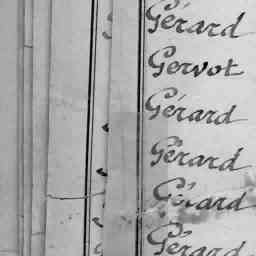 Gérard
Gervot
Gérard
Gérard
Gérard
Gérard